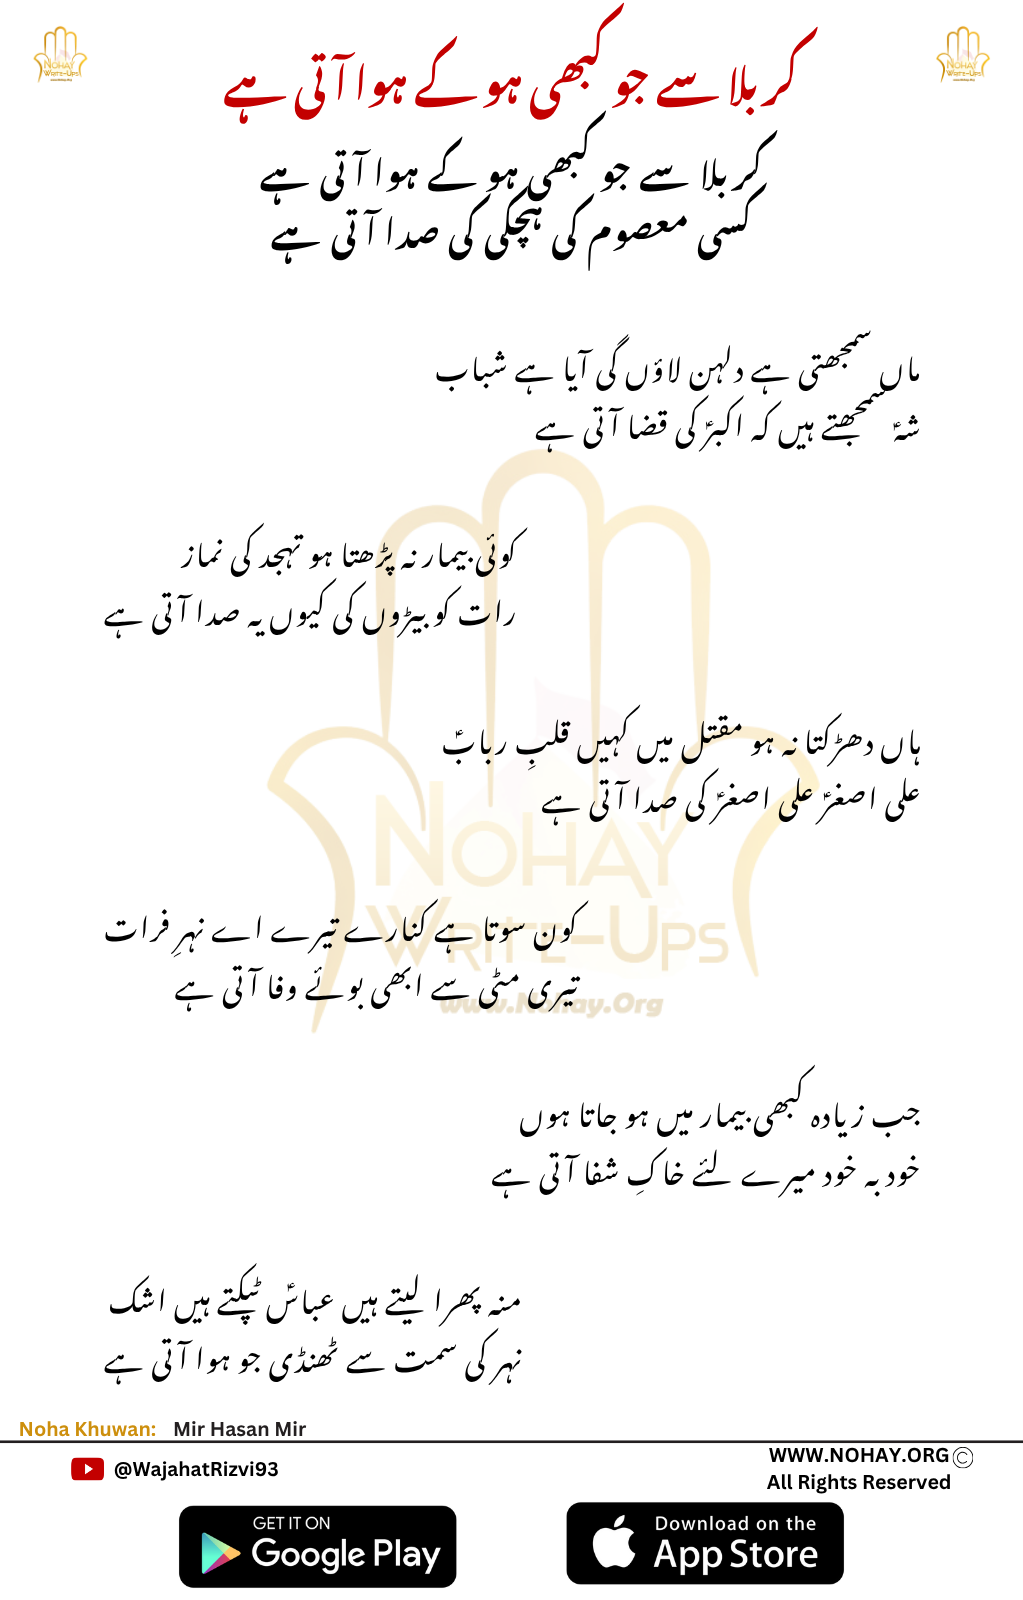 کربلا سے جو کبھی ہو کے ہوا آتی ہے
کربلا سے جو کبھی ہو کے ہوا آتی ہے
کسی معصوم کی ہچکی کی صدا آتی ہے
ماں سمجھتی ہے دلہن لاؤں گی آیا ہے شباب
شہؑ سمجھتے ہیں کہ اکبرؑ کی قضا آتی ہے
کوئی بیمار نہ پڑھتا ہو تہجد کی نماز
رات کو بیڑوں کی کیوں یہ صدا آتی ہے
ہاں دھڑکتا نہ ہو مقتل میں کہیں قلبِ ربابؑ
علی اصغرؑ علی اصغرؑ کی صدا آتی ہے
NOHAY
WRITE-UPS
www.Nohay.Org
کون سوتا ہے کنارے تیرے اے نہرِ فرات
تیری مٹی سے ابھی بوئے وفا آتی ہے
جب زیادہ کبھی بیمار میں ہو جاتا ہوں
خود بہ خود میرے لئے خاکِ شفا آتی ہے
منہ پھرا لیتے ہیں عباسؑ ٹپکتے ہیں اشک
نہر کی سمت سے ٹھنڈی جو ہوا آتی ہے
Noha Khuwan: Mir Hasan Mir
@WajahatRizvi93
WWW.NOHAY.ORG©
All Rights Reserved
GET IT ON
Google Play
Download on the
App Store